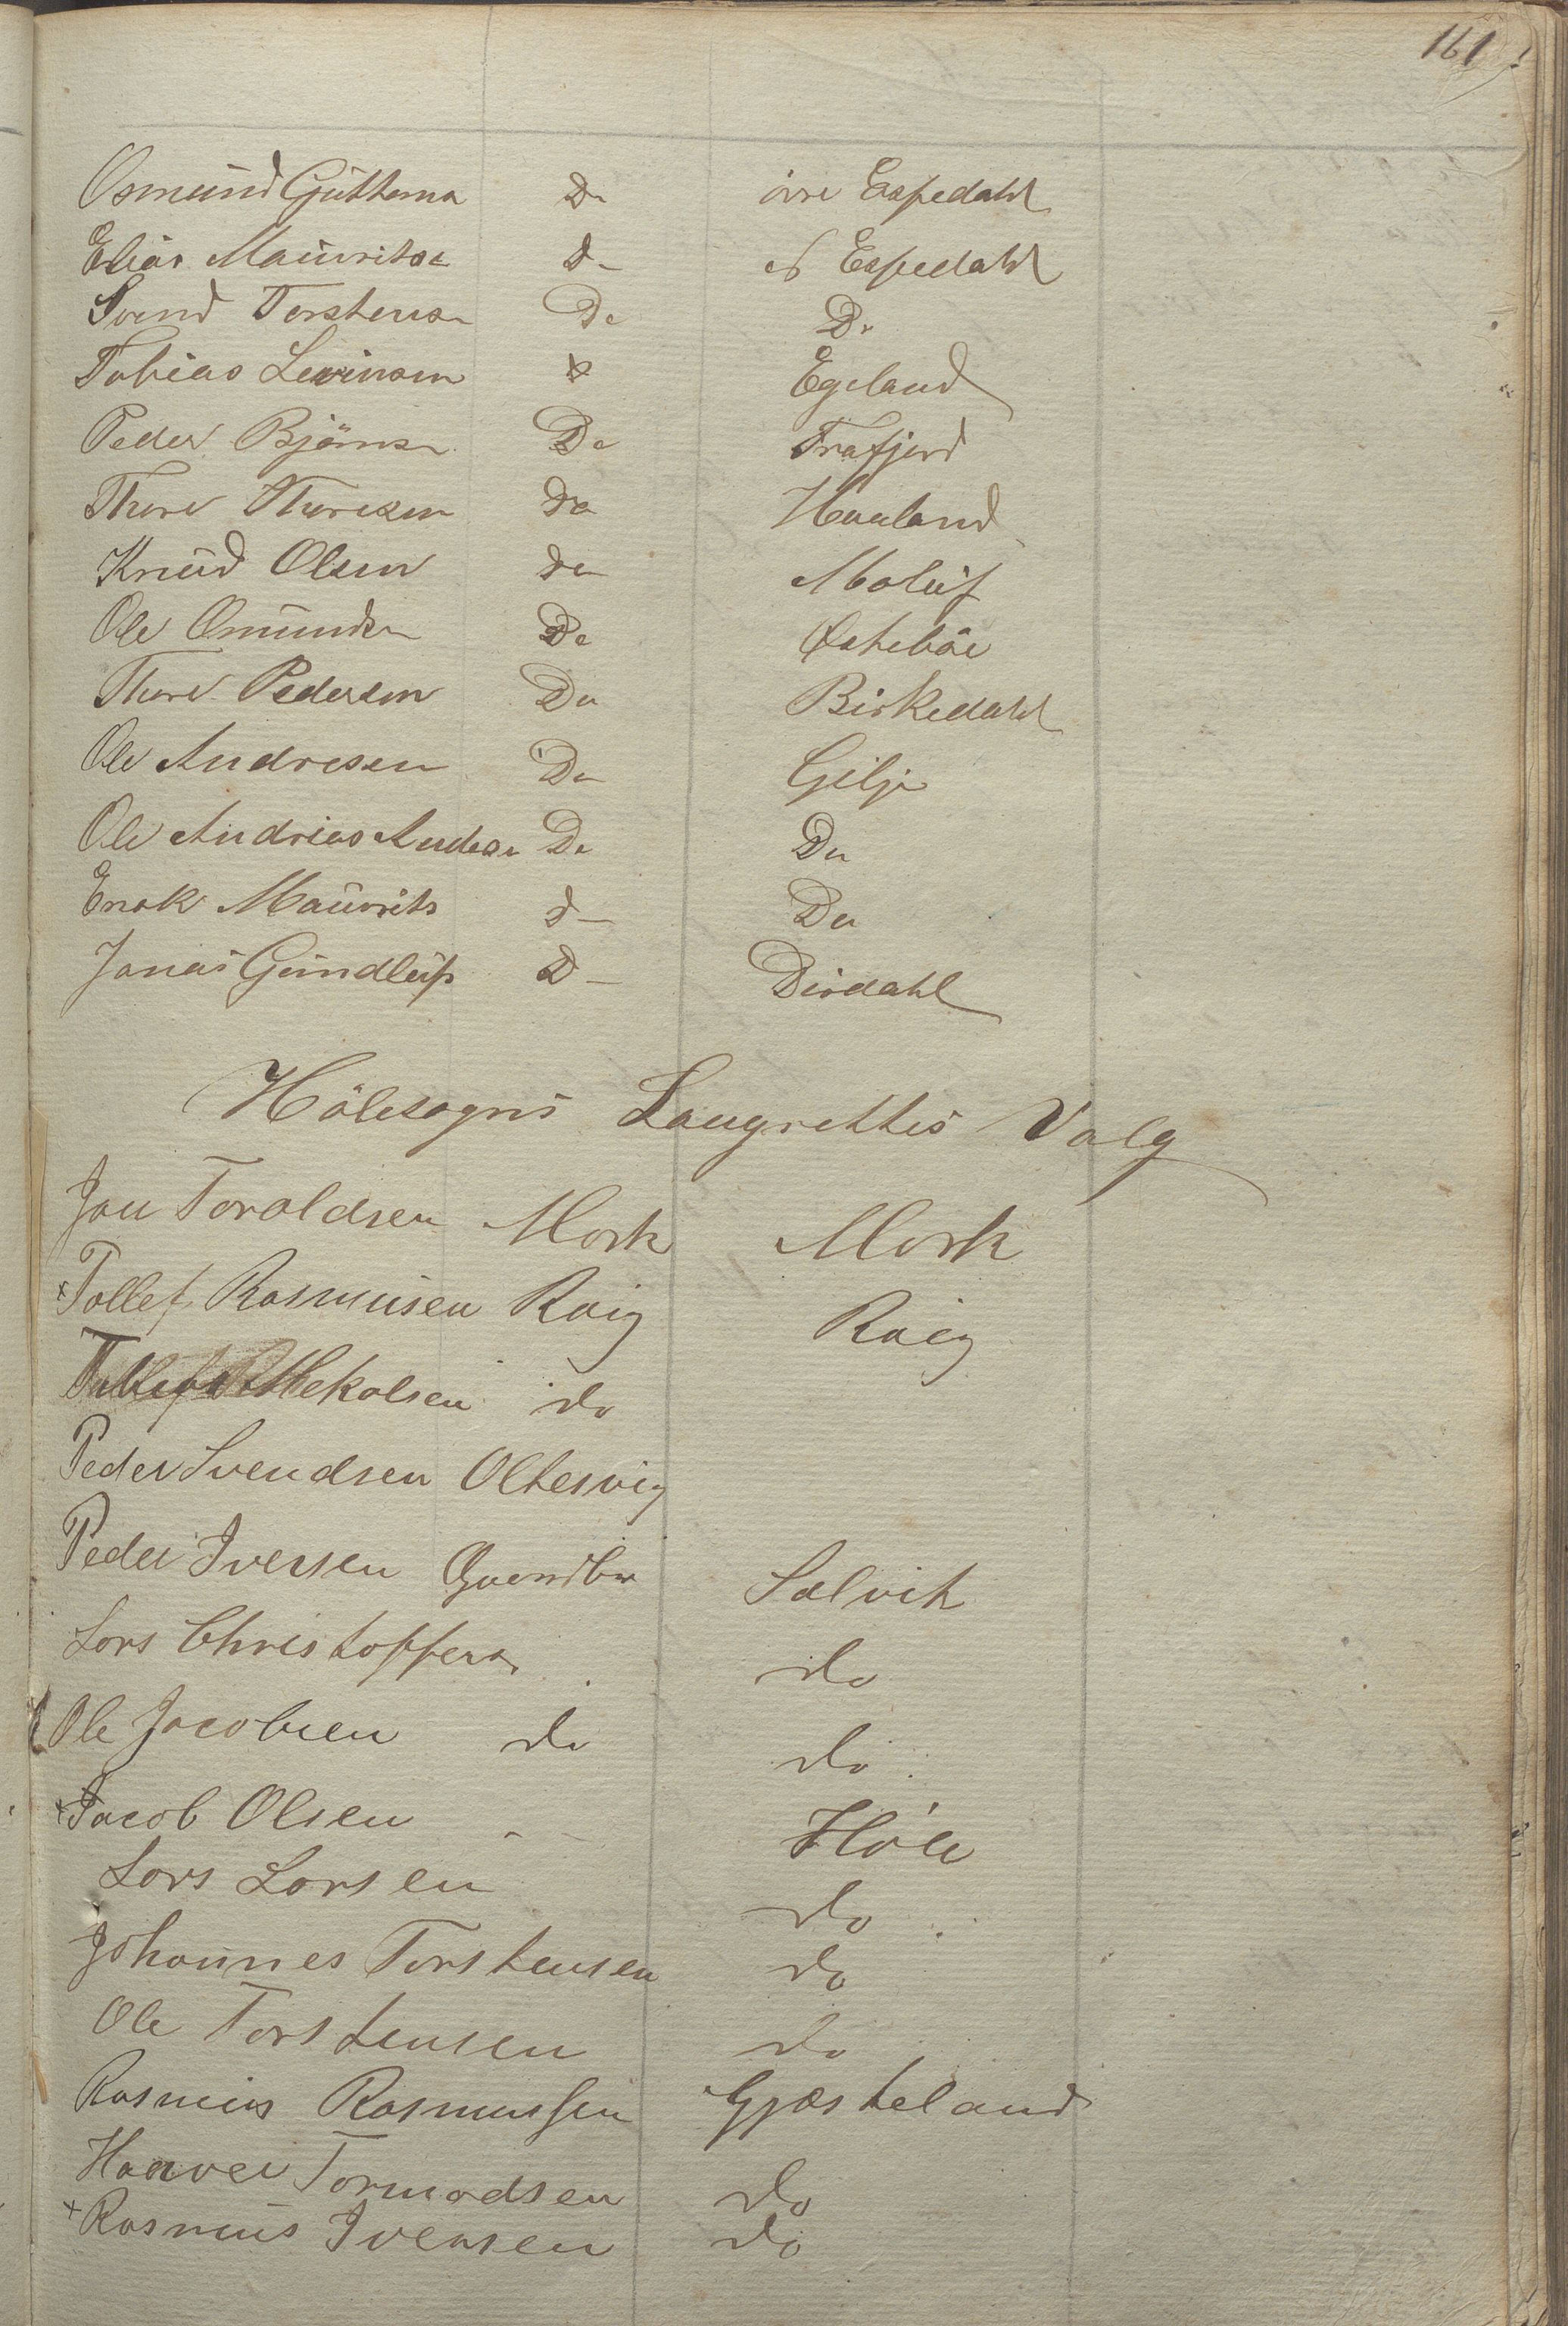 161
Osmund Guttorms Do övre Espedahl
Elias Mauritse D- Espedahl
Svend Torstens Do Do
Tobias Levinsen Egeland
Peder Björns Do Frafjord
Thore Thoresen Do Haaland
Knud Olsen Do Moluf
Ole Omunds Do Östeböe
Thore Pedersen Do Birkedahl
Ole Andresen Do Gilje
Ole Andrias Anders Do Do
Enok Maurits d- Do
Jonas Gundleifs D- Dirdahl
Hölesogns Laugrettes Valg
Jon Toroldsen Mork Mork
x Tollef Rasmusen Roig Roig
Mekolsen do
Peder Svendsen Oltesvig
Peder Iversen Selvik
Lors Christoffers do
Ole Jacobsen do do
x Jacob Olsen Höle
Lors Lorsen do
Johannes Torstensen do
Ole Torstensen do
Rasmus Rasmussen Gjesteland
Haaver Tormodsen do
x Rasmus Iversen do